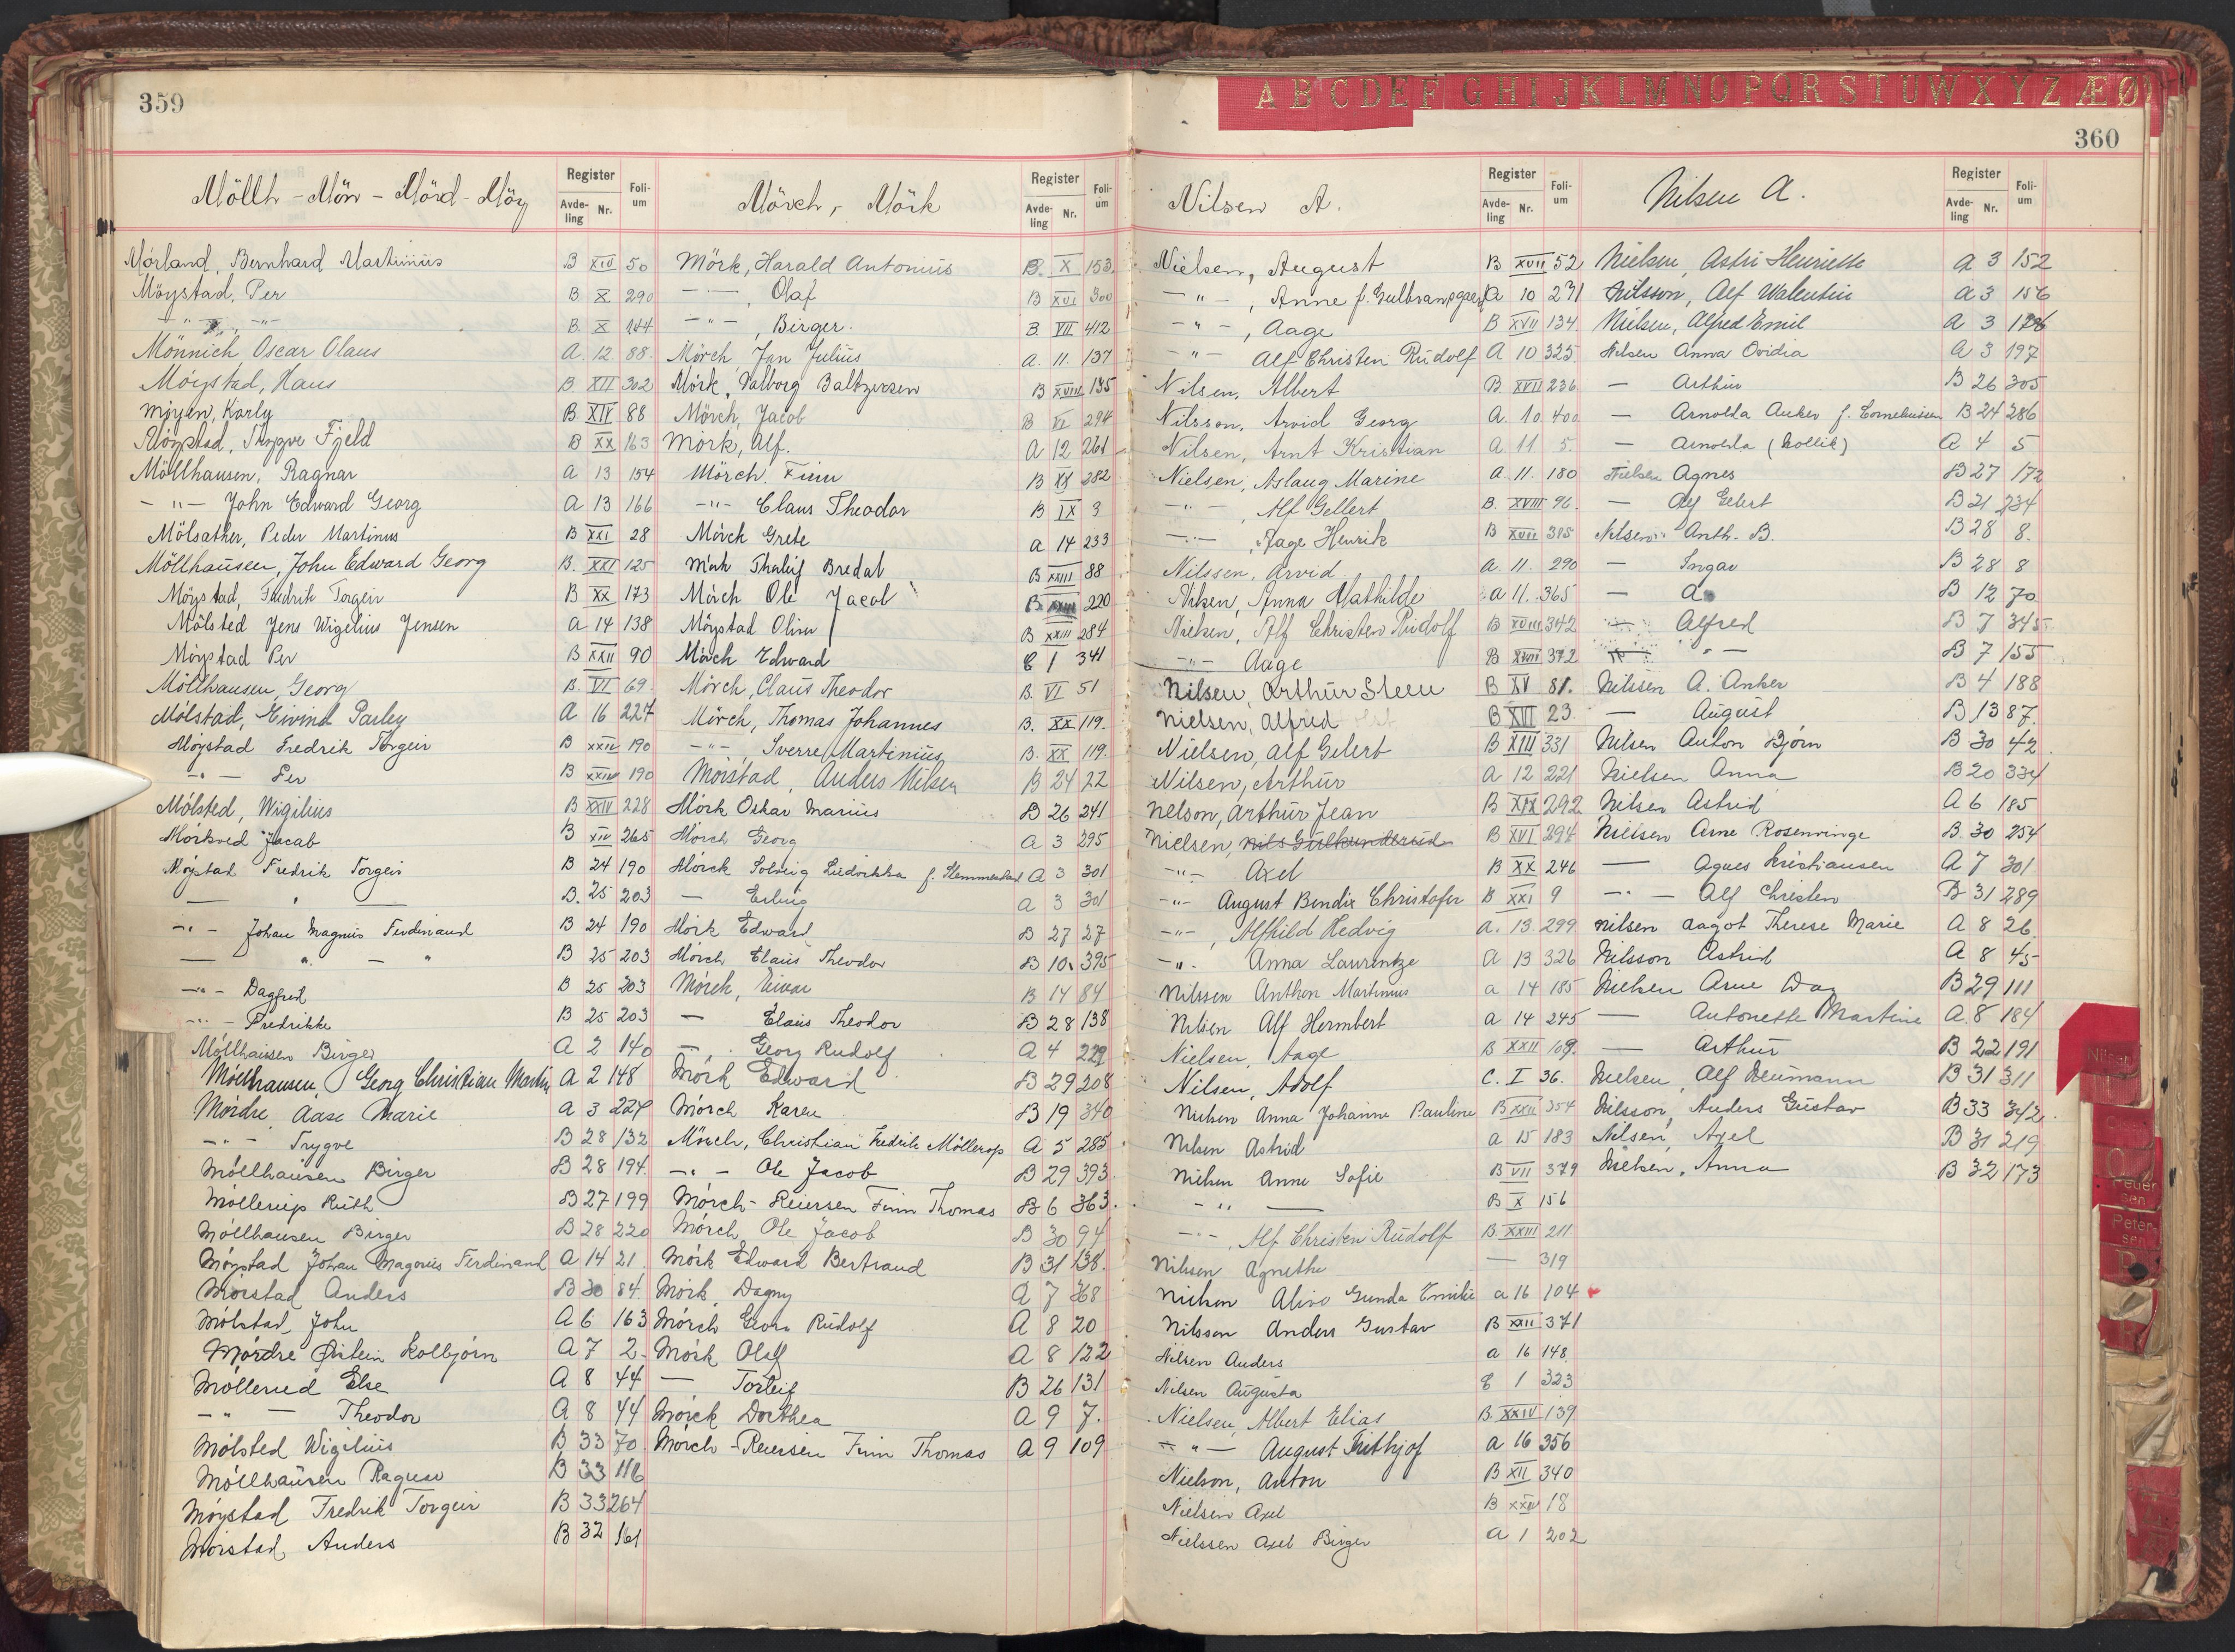 359
Möllh - Mön - Mörd - Möy
Register
Avde-ling Nr.
Foli-um
Mörland, Bernhard Martinius B XIV 50
Möystad, Per B X 290
- " - , - " - B. X 144
Mönnich, Oscar Olaus A. 12 88.
Möystad, Hans B XII 302
Möyen, Karly B XIV 88
Möystad, Trygve Fjeld B XX 163
Möllhausen, Ragnar A 13 154
- " - John Edward Georg A 13 166
Mölsather, Peder Martinus B XXI 28
Möllhausen, John Edward Georg B. XXI 125
Möystad, Fredrik Torgeir B XX 173
Mölsted Jens Wigelius Jensen A 14 138
Möystad Per B XXII 90
Möllhausen, Georg B. VII 69.
Mölstad, Eivind Parley A 16 227
Möystad Fredrik Torgeir B XXIV 190
- " - Per B XXIV 190
Mölsted, Wigilius B XXIV 228
Mörkved Jacob B XIV 265
Möystad Fredrik Torgeir B 24 190
— " — B. 25 203
- " - Johan Magnus Ferdinand B 24 190
— " — " B 25 203
- " - Dagfred B 25 203
- " - Fredrikke B 25 203
Möllhausen Birger A 2 140
Möllhausen, Georg Christian Martin A 2 148
Mördre, Aase Marie A 3 227
- " - Trygve B 28 132
Möllhausen Birger B 28 194.
Möllerup Ruth B 27 199
Möllhausen Birger B 28 220
Möystad Johan Magnus Ferdinand A 14 21
Mörstad Anders B 30 84.
Mölstad, John A 6 163
Mördre Östein Kolbjörn A 7 2
Möllerud Else A 8 44
- " - Theodor A 8 44
Mölsted Wigilius B 33 70
Möllhausen Ragnar B 33 116
Möystad Fredrik Torgeir B 33 264
Mörstad, Anders B 32 161
Mörch, - Mörk
Register
Avde-ling Nr.
Foli-um
Mörk, Harald Antonius B. X 153.
— , Olaf B XVI 300
- " - , Birger. B. VII 412
Mörch, Jan Julius A. 11. 137
Mörk, Valborg Baltzersen B XVIII 135
Mörch, Jacob B VI 294
Mörk, Alf. A 12 261
Mörch, Finn B XX 282
- " - Claus Theodor B IX 3
Mörch Grete A 14 233
Mörk Thalif Bredal B XXIII 88
Mörch Ole Jacob B. XXIII 220
Möystad Oliver B XXIII 284
Mörch Edward C 1 341
Mörch, Claus Theodor B. VI 51
Mörch, Thomas Johannes B. XX 119.
- " - , Sverre Martinius B. XX 119.
Möistad, Anders Nilsen B 24 22
Mörk Oskar Marius B 26 241
Mörch Georg A 3 295
Mörck Solveig Ludvikka f. Hemmestad A 3 301
— Erling A 3 301
Mörk Edward B 27 27
Mörch Claus Theodor B 10. 395
Mörck, Einar B 14 84
— Claus Theodor B 28 138
— Georg Rudolf A 4 229
Mörk Edward B 29 208
Mörch Karen B 19 340
Mörch, Christian Fredrik Möllerop A 5 285
- " - Ole Jacob B 29 393.
Mörch - Reiersen Finn Thomas B 6 363.
Mörch Ole Jacob B 30 94
Mörk Edward Bertrand B 31 138.
Mörk, Dagny A 7 368
Mörch Georg Rudolf A 8 20
Mörk Olaf A 8 122
— Torleif B 26 131
Mörck Dorthea A 9 7.
Mörch - Reiersen Finn Thomas A 9 109
A B C D E F G H I J K L M N O P Q R S T U W X Y Z Æ Ø
360
Nilsen A.
Register
Avde-ling Nr.
Foli-um
Nielsen, August B XVII 52
- " - , Anne f. Gulbransgaard A 10 271
- " - , Aage B XVII 134
- " - Alf Christen Rudolf A 10 325
Nilsen, Albert B. XVII 236
Nilsson, Arvid Georg A. 10. 400
Nilsen, Arnt Kristian A. 11 5.
Nielsen, Aslaug Marine A. 11. 180
- " - , Alf Gellert B. XVIII 96.
- " - , Aage Henrik B XVII 395
Nilssen, Arvid A. 11. 290
Nilsen, Anna Mathilde A 11. 365
Nielsen, Alf Christen Rudolf B XVIII 342
- " - Aage B XVIII 372
Nilsen, Arthur Steen B XV 81.
Nielsen, Alfred B XVI 23
Nielsen, Alf Gelert B XIII 331
Nilsen, Arthur A 12 221
Nelson, Arthur Jean B XIX 292
Nielsen, Nils Gulbunderud B XVI 294
- " - Axel B XX 246
- " - August Bendix Christofer B XXI 9
- " - , Alfhild Hedvig A. 13. 299
- " - Anna Laurentze A 13 326
Nilssen Anthon Martinius A 14 185
Nilsen Alf Hermbert A 14 245
Nielsen, Aage B XXII 109.
Nilsen, Adolf C. I 36.
Nielsen Anna Johanne Pauline B XXII 354
Nilsen Astrid A 15 183
Nilsen Anne Sofie B VII 379
- " — B X 156
- " - , Alf Christen Rudolf B. XXIII 211
Nilsen Agnethe — 319
Nielsen Alivo Gunda Emilie A 16 104
Nilsson Anders Gustav B XXII 371
Nilsen Anders A 16 148.
Nilsen Augusta C 1 323
Nielsen, Albert Elias B. XXIV 139
- " - August Frithjof A 16 356
Nielson, Anton B XII 340
Nielsen Axel B XXIV 18
Nielssen Axel Birger A 1 202
Nilsen A.
Register
Avde-ling Nr.
Foli-um
Nielsen, Astri Henriette A 3 152
Nilsson, Alf Walentin A 3 156
Nielsen, Alfred Emil A 3 176
Nilsen Anna Ovidia A 3 197
— Arthur B 26 305
— Arnolda Anker f. Corneliussen B 24 286
— Arnolda (Kollik) A 4 5
Nielsen Agnes B 27 172
— Alf Gelert B 21 234
Nilsen Anth. B. B 28 8.
— Ingar B 28 8
— A. B 12 70
— Alfred B 7 345
— " — B 7 155
Nilssen A. Anker B 4 188
— August B 13 87.
Nilsen Anton Björn B 30 42
Nielsen Anna B 20 334
Nilsen Astrid A 6 185
Nielsen Arne Rosenvinge B. 30 254
— Agnes Kristiansen A 7 301
- " - Alf Christen B 31 289
Nilsen Aagot Therese Marie A 8 26.
Nilsson Astrid A 8 45
Nielsen Arne Dag B 29 111
— Antonette Martine A. 8 184
— Arthur B 22 191
Nielsen, Alf Neumann B 31 311
Nilsson, Anders Gustav B 33 342.
Nilsen, Axel B 31 219
Nielsen, Anna B 32 173
Nilsen
Peder-sen
Peter-sen